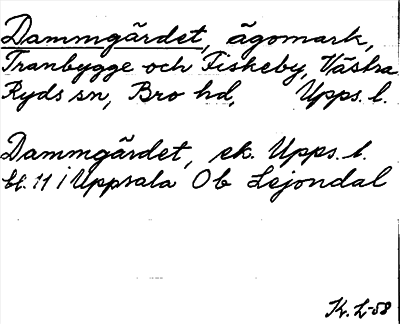 Dammgärdet, ägomark,
Tranbygge och Fiskeby, Västra
Ryds sn, Bro hd, Upps. l.
Dammgärdet, ek. Upps. l.
bl. 11 i Uppsala Ob Lejondal
Kr. L-58